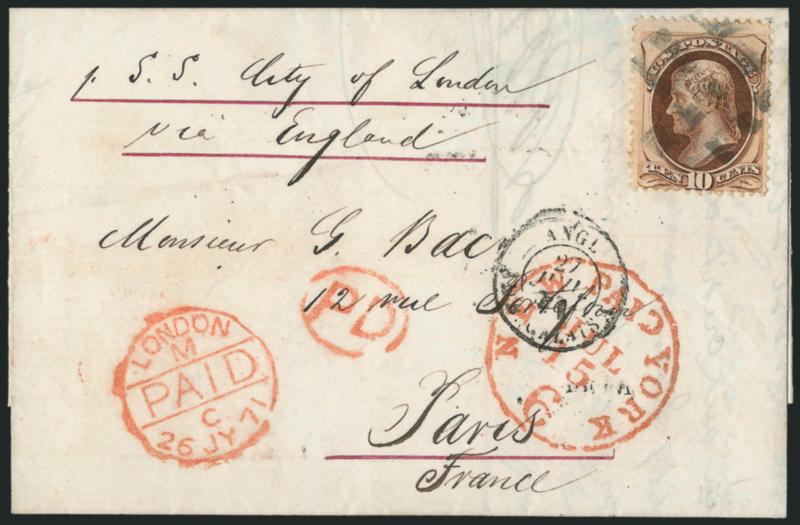 p. S. S. City of London
via England
U.S. POSTAGE
TEN 10 CENTS
Monsieur G. Bac
12 rue
Paris
France
PD
LONDON
M
PAID
C
26 JY 71
ANGL
27
NEW PAID YORK
JUL
15